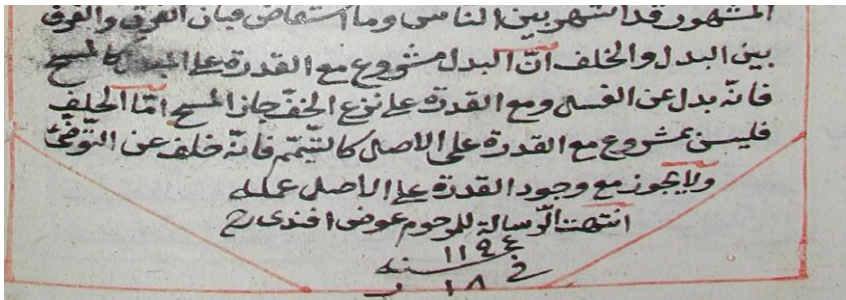 المشهور قد اشتهر بين الناس وما استفاض فبان الفرق والفرق
بين البدل والخلف انّ البدل مشروع مع القدرة على المبدل كالمسح
فانّه بدل عن الغسل ومع القدرة على نزع الخفّ جاز المسح امّا الخلف
فليس بمشروع مع القدرة على الاصل كالتيّمم فانّه خلف عن التوّضئ
ولا يجوز مع وجود القدرة على الاصل عمله
انتهت الرّسالة للمرحوم عوض افندى رح
سنه ١١٩٤
في ١٨ ر